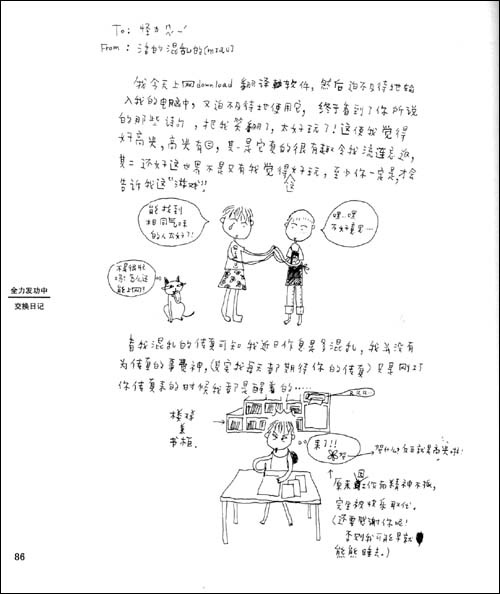 To: 怪力ㄦˊ
From: 渣的混乱的(mzxu)
我今天上网download 翻译软件, 然后迫不及待地输
入我的电脑中, 又迫不及待地使用它, 终于看到了你所说
的那些诗句, 把我笑翻了, 太好玩了! 这使我觉得
好高兴, 高兴有二, 其一是它真的很有趣令我流连忘返,
其二还好这世界不是只有我觉得这好玩, 至少你一定是, 才会
告诉我这"游戏"!
能找到
相同气味
的人太好了!
嘿..嘿
不好意思…
不是很熟
吗? 怎么还
能上网?
全力发功中
交换日记
看我混乱的传真可知我近日作息是多混乱, 我并没有
为传真的事费神, (笑定我每天都期待你的传真) 只是刚巧
你传真来的时候我都是醒着的……
楼梯
美
书柜.
来了!!
原来因工作而精神不振,
完全被快乐取代.
(还要感谢你呢!
否则我可能早就
熊熊睡去.)
86